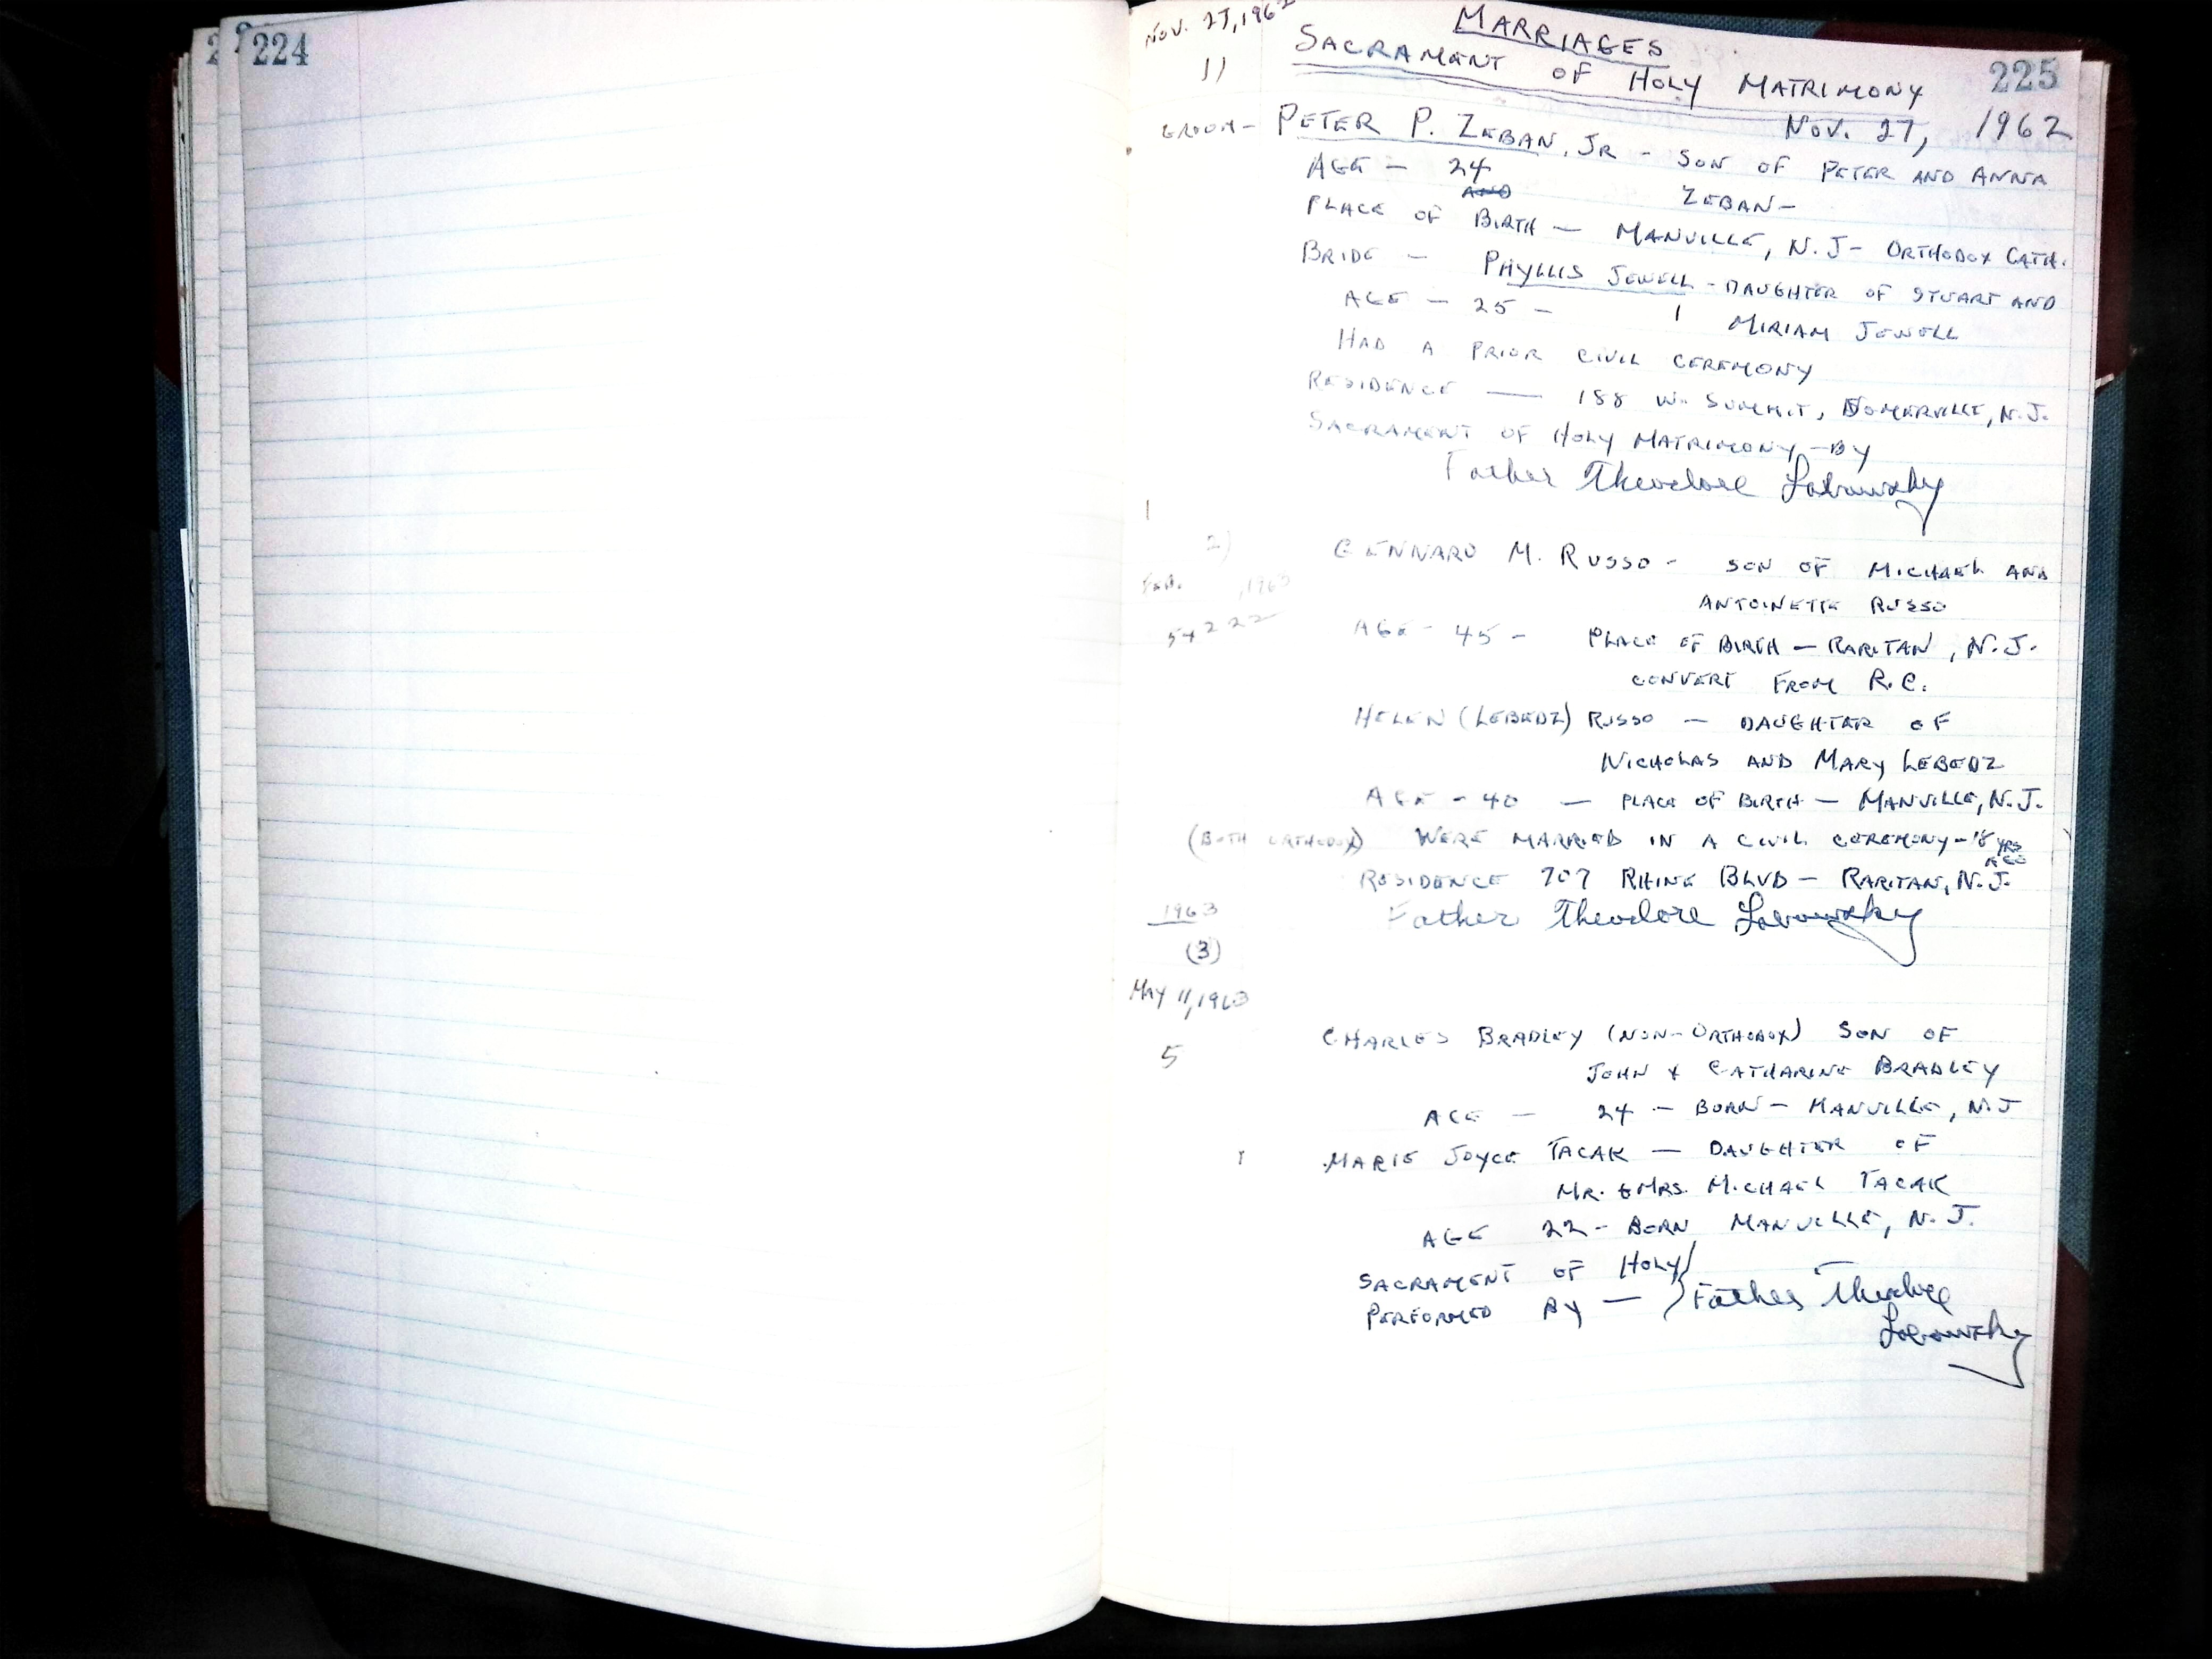 224
225
MARRIAGES
NOV. 27, 1962
SACRAMENT OF HOLY MATRIMONY
1)
NOV. 27, 1962
GROOM - PETER P. ZEBAN, JR - SON OF PETER AND ANNA
AGE - 24 ZEBAN -
PLACE OF BIRTH - MANVILLE, N.J - ORTHODOX CATH.
BRIDE - PHYLLIS JEWELL - DAUGHTER OF STUART AND
AGE - 25 - MIRIAM JEWELL
HAD A PRIOR CIVIL CEREMONY
RESIDENCE — 188 W. SUMMIT, SOMERVILLE, N.J.
SACRAMENT OF HOLY MATRIMONY - BY
Father Theodore Labowsky
2)
GENNARO M. RUSSO - SON OF MICHAEL AND
,1963
ANTOINETTE RUSSO
AGE - 45 - PLACE OF BIRTH - RARITAN, N.J.
CONVERT FROM R.C.
HELEN (LEBEDZ) RUSSO - DAUGHTER OF
NICHOLAS AND MARY LEBEDZ
AGE - 40 - PLACE OF BIRTH - MANVILLE, N.J.
(BOTH ORTHODOX) WERE MARRIED IN A CIVIL CEREMONY - 18 YRS
AGO
RESIDENCE 707 RHINE BLVD - RARITAN, N.J.
1963
Father Theodore Labowsky
(3)
MAY 11, 1963
CHARLES BRADLEY (NON-ORTHODOX) SON OF
5
JOHN & CATHARINE BRADLEY
AGE - 24 - BORN - MANVILLE, N.J
MARIE JOYCE TACAK - DAUGHTER OF
MR. & MRS. MICHAEL TACAK
AGE 22 - BORN MANVILLE, N.J.
SACRAMENT OF HOLY
PERFORMED BY — } Father Theodore
Labowsky